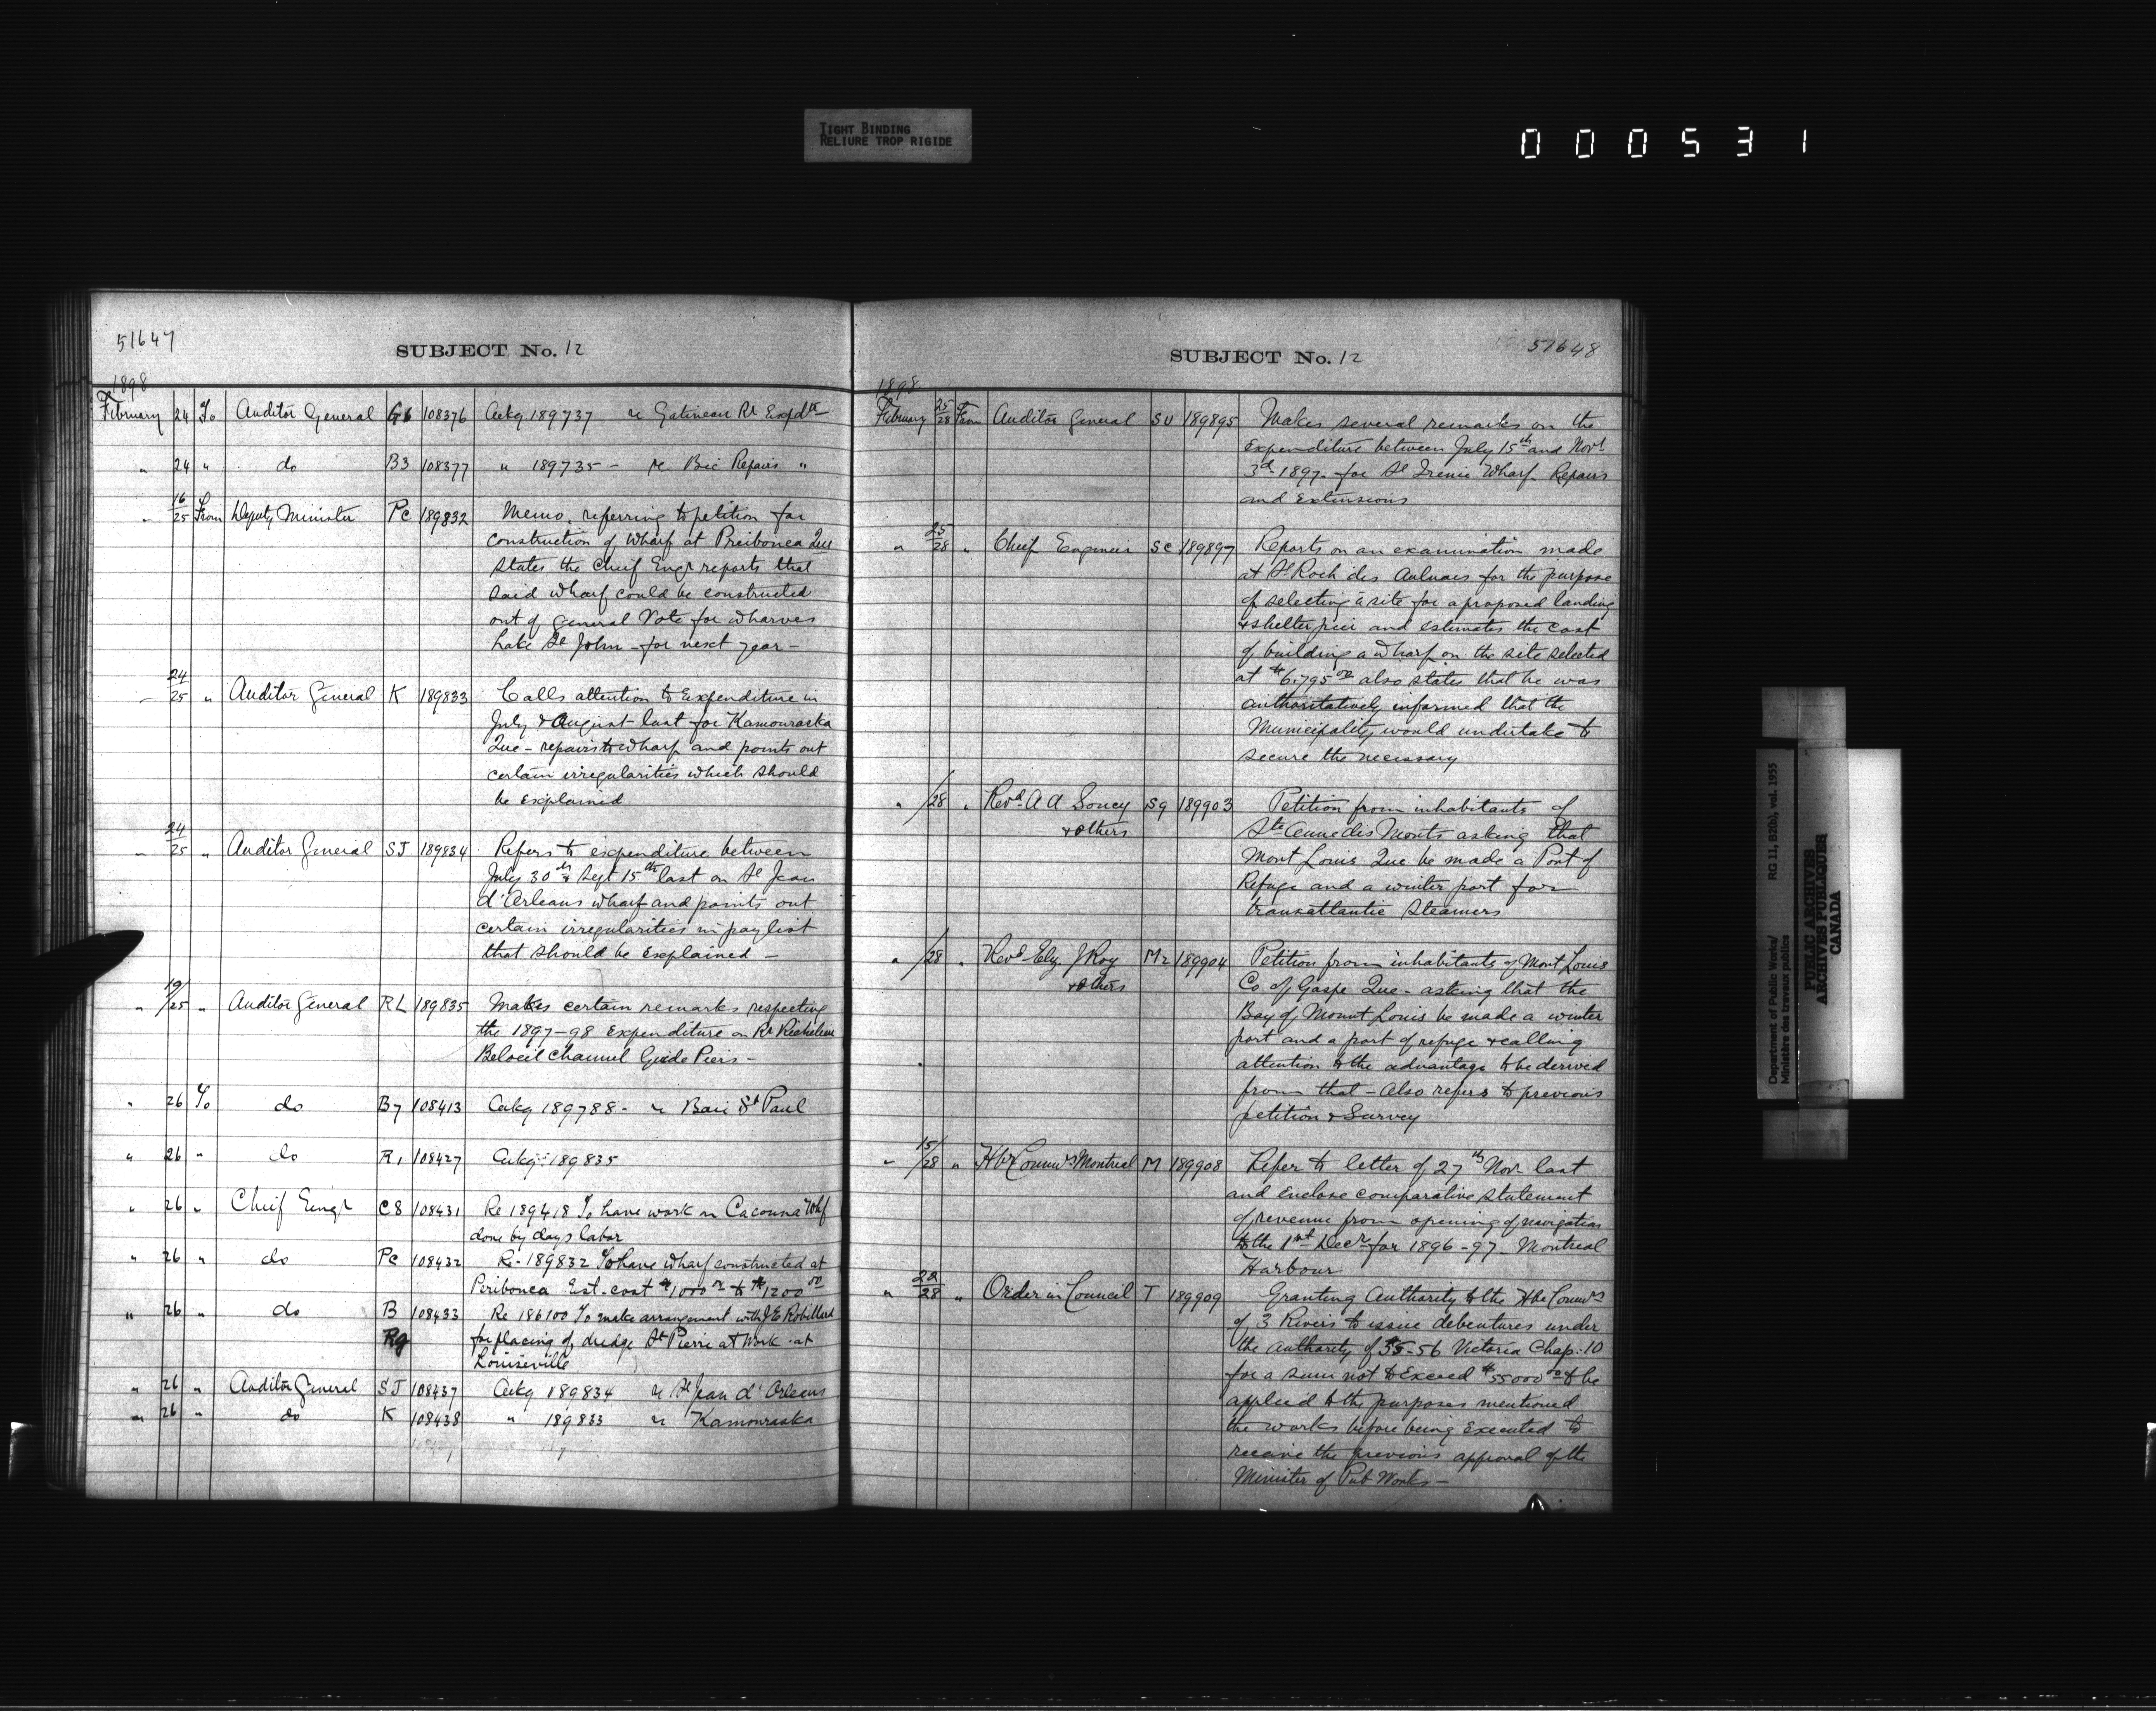 TIGHT BINDING
RELIURE TROP RIGIDE
000531
51647
SUBJECT No. 12
1898
February 24 To Auditor General G6 108376 Ackg 189737 re Gatineau Rr Expdre
" 24 " do B3 108377 " 189735 - re Bic Repairs "
" 16/25 From Deputy Minister Pc 189832 Memo. referring to petition for
construction of wharf at Peribonca Que
states the Chief Engr reports that
said wharf could be constructed
out of general Vote for wharves
Lake St John - for next year -
" 24/25 " Auditor General K 189833 Calls attention to Expenditure in
July & August last for Kamouraska
Que - repairs to wharf and points out
certain irregularities which should
be explained
" 24/25 " Auditor General SJ 189834 Refers to expenditure between
July 30th & Sept 15th last on St Jean
d'Orleans wharf and points out
certain irregularities in pay list
that should be explained -
" 19/25 " Auditor General RL 189835 Makes certain remarks respecting
the 1897-98 Expenditure on Rr Richelieu
Beloeil Channel Guide Piers -
" 26 To do B7 108413 Ackg 189788 - re Baie St Paul
" 26 " do R1 108427 Ackg 189835
" 26 " Chief Engr C8 108431 Re 189418 To have work on Cacouna Whf
done by days labor
" 26 " do Pc 108432 Re 189832 To have wharf constructed at
Peribonca Est. cost $1000 00 to $1200 00
" 26 " do B 108433 Re 186100 To make arrangement with J E Robillard
Rg for placing of dredge St Pierre at work at
Louiseville
" 26 " Auditor General SJ 108437 Ackg 189834 re St Jean d'Orleans
" 26 " do K 108438 " 189833 re Kamouraska
51648
SUBJECT No. 12
1898
February 25/28 From Auditor General SU 189895 Makes several remarks on the
expenditure between July 15th and Novr
3d 1897 - for St Irenie Wharf - Repairs
and Extensions
" 25/28 " Chief Engineer SC 189897 Reports on an examination made
at St Roch des Aulnaies for the purpose
of selecting a site for a proposed landing
& shelter pier and estimates the cost
of building a wharf on the site selected
at $6.795 00 also states that he was
authoritatively informed that the
Municipality would undertake to
secure the necessary
" /28 " Revd A A Soucy S9 189903 Petition from inhabitants of
& others Ste Anne des Monts asking that
Mont Louis Que be made a Port of
Refuge and a winter port for
transatlantic steamers
" /28 " Revd J Roy M2 189904 Petition from inhabitants of Mont Louis
& others Co of Gaspe Que - asking that the
Bay of Mount Louis be made a winter
port and a port of refuge & calling
attention to the advantage to be derived
from that - Also refers to previous
petition & Survey
" 15/28 " Hbr Commrs Montreal M 189908 Refer to letter of 27th Nov last
and enclose comparative statement
of revenue from opening of navigation
to the 1st Decr for 1896-97 - Montreal
Harbour
" 22/28 " Order in Council T 189909 Granting Authority to the Hbr Commrs
of 3 Rivers to issue debentures under
the authority of 55-56 Victoria Chap: 10
for a sum not to Exceed $55000 00 to be
applied to the purposes mentioned
the works before being Executed to
receive the previous approval of the
Minister of Pub Works -
Department of Public Works/ RG 11, B2(b), vol. 1955
Ministère des travaux publics
PUBLIC ARCHIVES
ARCHIVES PUBLIQUES
CANADA